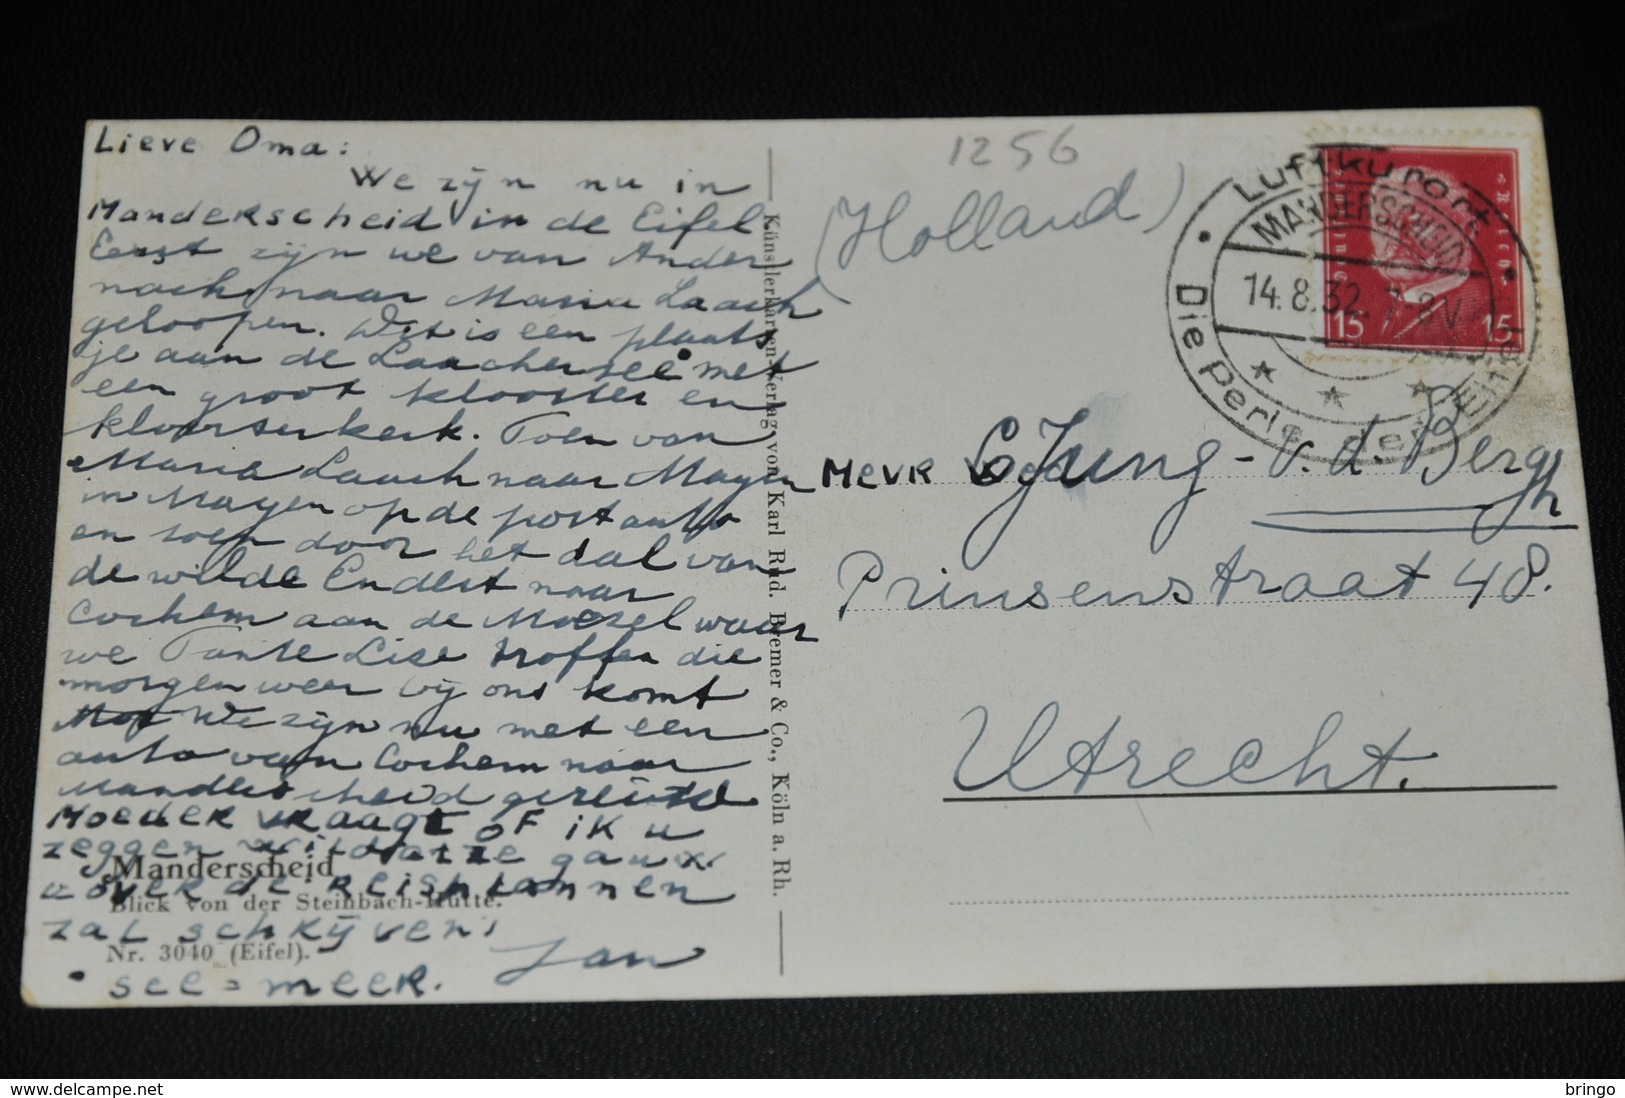 Lieve Oma:
We zijn nu in
Manderscheid in de Eifel
Eerst zijn we van Ander
nach naar Maria Laach
geloopen. Dit is een plaats
je aan de Laachersee met
een groot klooster en
kloosterkerk. Toen van
Maria Laach naar Mayen
in Mayen op de postauto
en toen door het dal van
de wilde Endert naar
Cochem aan de Moezel waar
we Tante Lise troffen die
morgen weer bij ons komt
We zijn nu met een
auto van Cochem naar
Manderscheid gereisd
Moeder vraagt of ik u
zeggen wil dat ze gauw
over de reisplannen
zal schrijven.
Jan
see = meer.
Manderscheid
Blick von der Steinbach-Hütte.
Nr. 3040 (Eifel).
Künstlerkarten-Verlag von Karl Rud. Bremer & Co., Köln a. Rh.
1256
(Holland)
Luftkurort
MANDERSCHEID
14.8.32. 7-8V
Die Perle der Eifel
15 15
Mevr Jung-v.d. Bergh
Prinsenstraat 48.
Utrecht.
delcampe.net
bringo